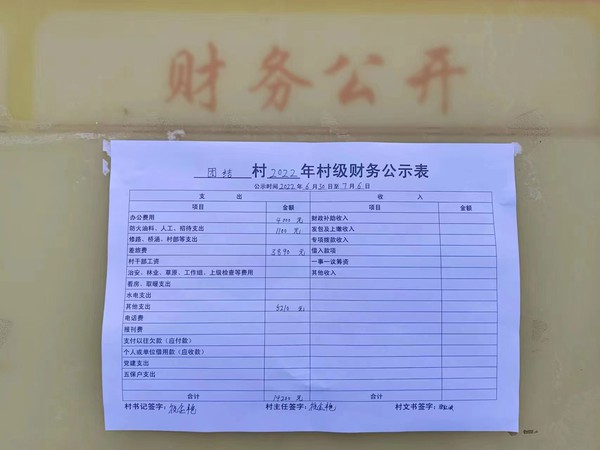 财务公开
团结 村 2022 年村级财务公示表
公示时间 2022 年 6 月 30 日至 7 月 6 日
支 出 收 入
项目 金额 项目 金额
办公费用 4000 元 财政补助收入
防火油料、人工、招待支出 1100 元 发包及上缴收入
修路、桥涵、村部等支出 专项拨款收入
差旅费 3890 元 借入款项
村干部工资 一事一议筹资
治安、林业、草原、工作组、上级检查等费用 其他收入
看房、取暖支出
水电支出
其他支出 5210 元
电话费
报刊费
支付以往欠款（应付款）
个人或单位借用款（应收款）
党建支出
五保户支出
合计 14200 元 合计
村书记签字： 村主任签字： 村文书签字：